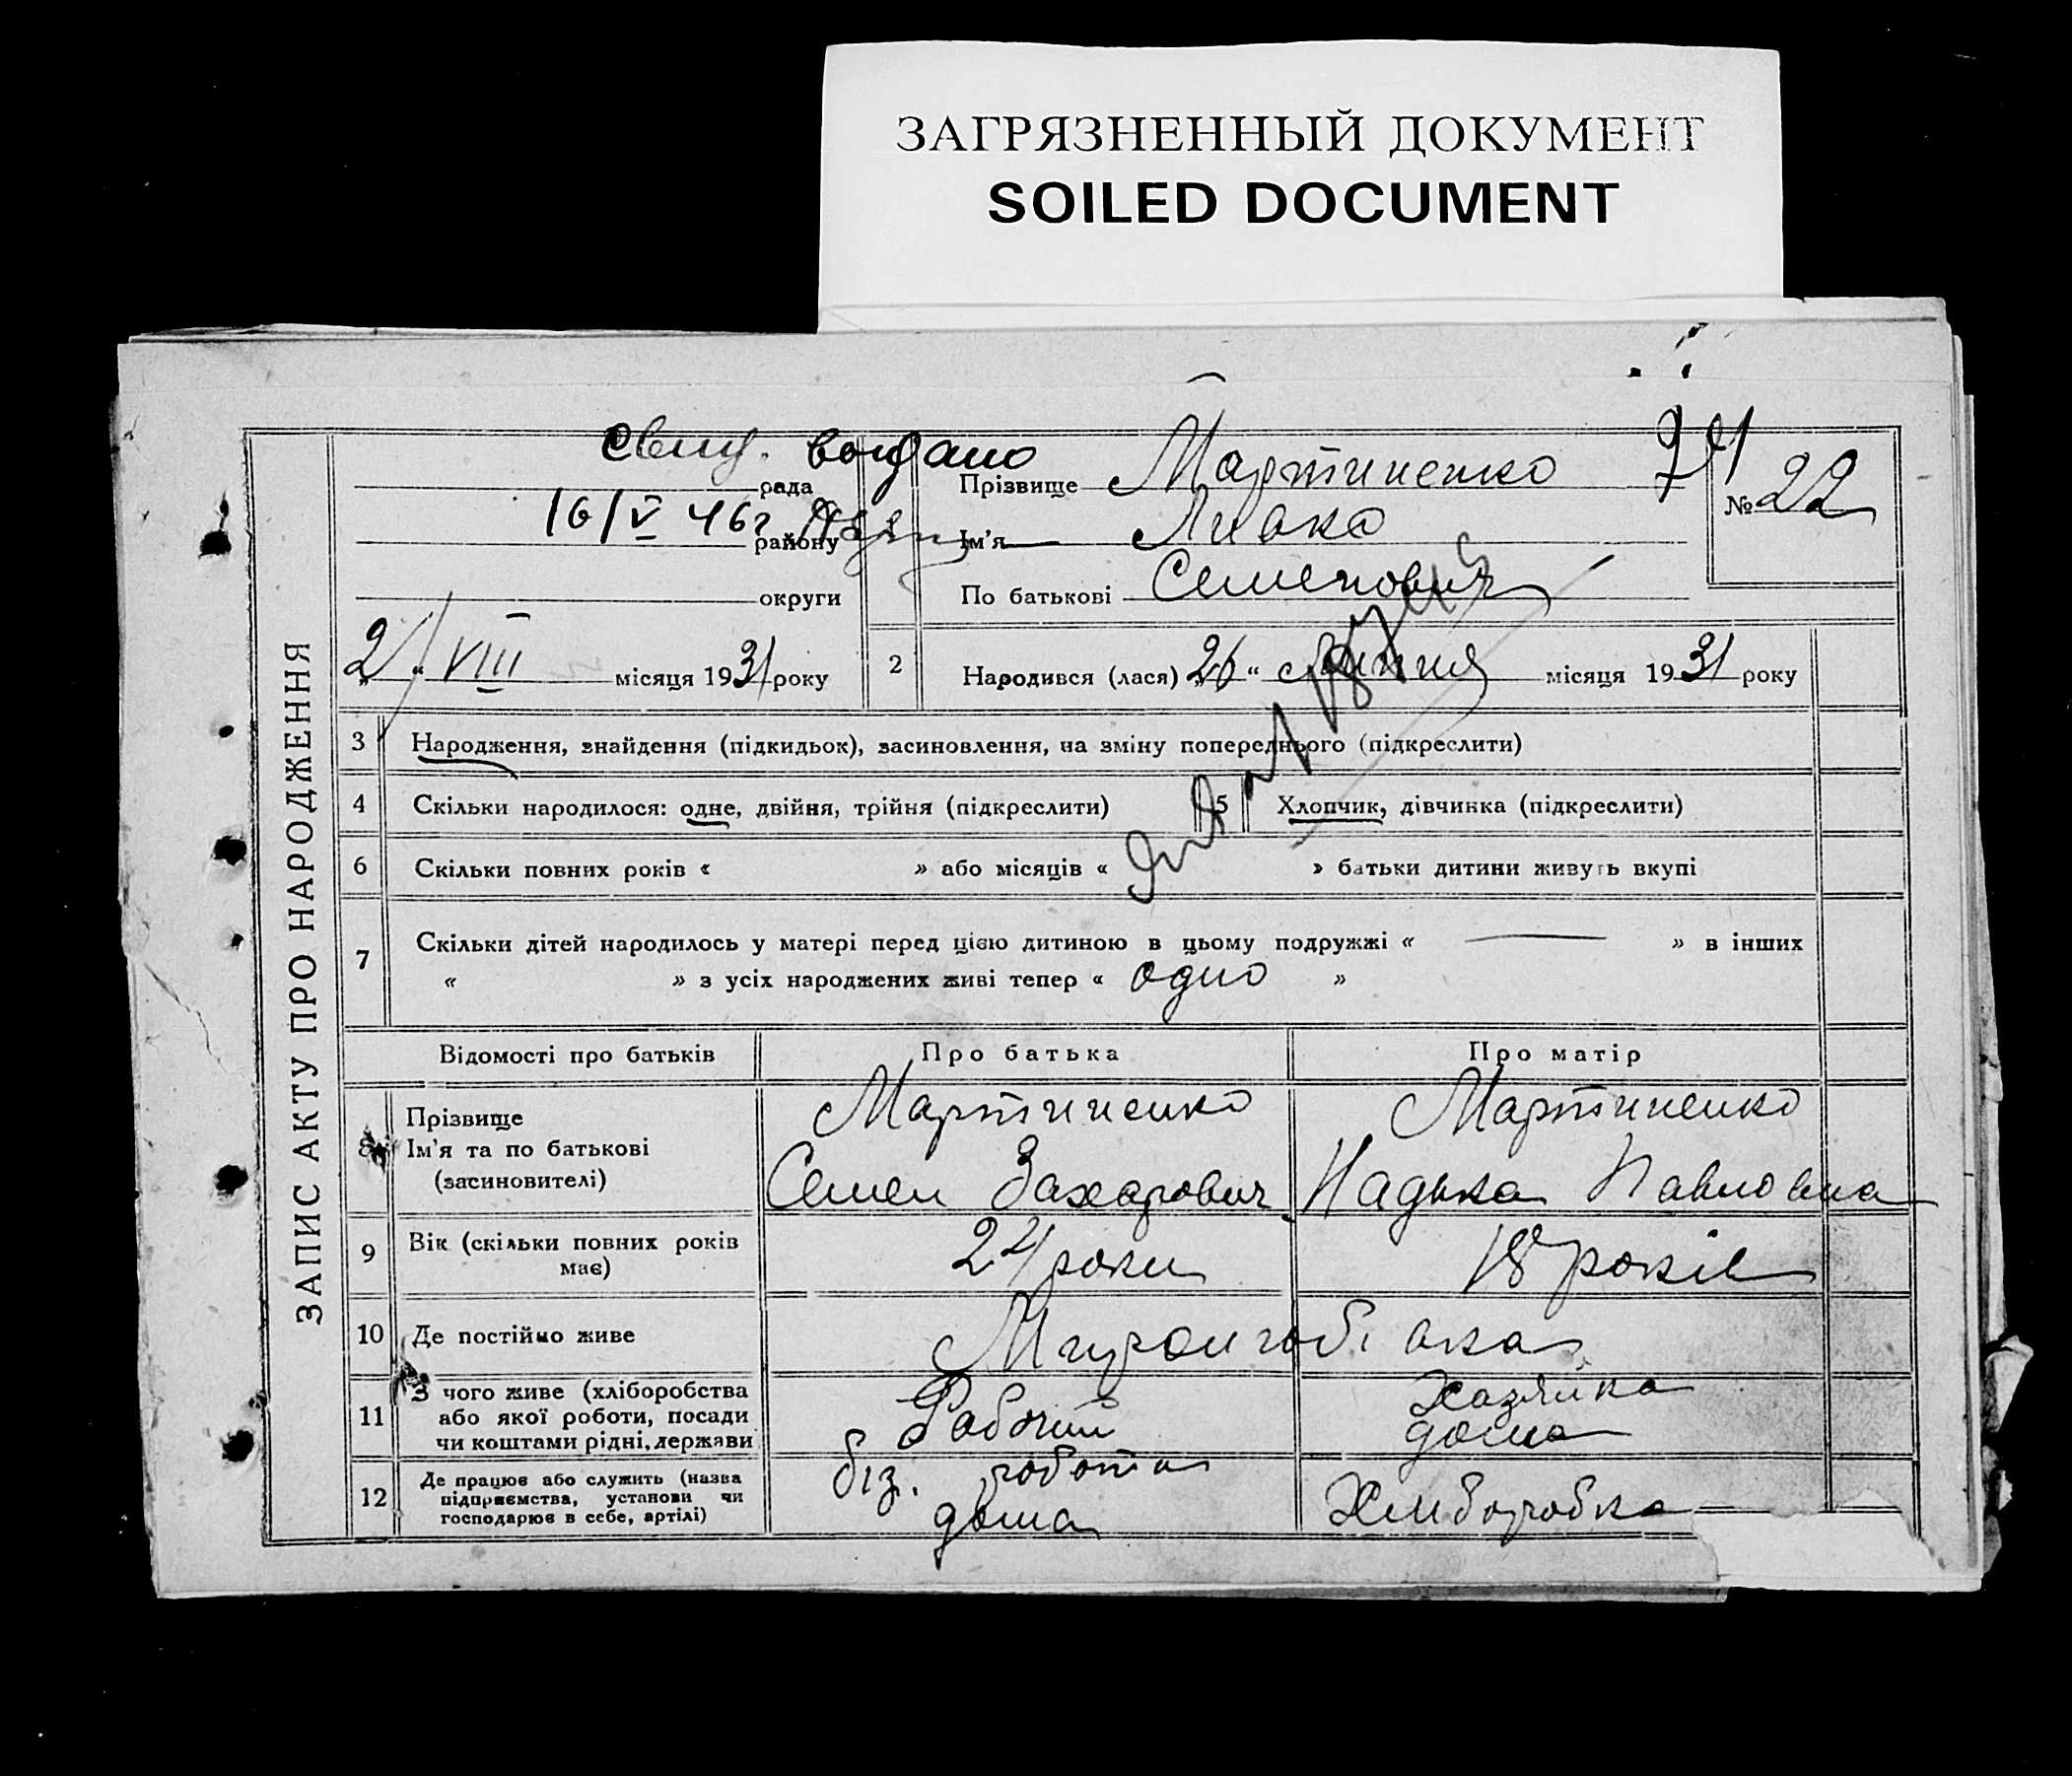 ЗАГРЯЗНЕННЫЙ ДОКУМЕНТ
SOILED DOCUMENT
ЗАПИС АКТУ ПРО НАРОДЖЕННЯ
Свид. выдано
рада
16/V 46г
району
округи
2/VIII місяця 1931 року
Прізвище Мартиненко
Ім'я
По батькові Семенович
№ 22
2 Народився (лася) „26“ місяця 1931 року
3 Народження, знайдення (підкидьок), засиновлення, на зміну попереднього (підкреслити)
4 Скільки народилося: одне, двійня, трійня (підкреслити)
5 Хлопчик, дівчинка (підкреслити)
6 Скільки повних років « » або місяців « » батьки дитини живуть вкупі
7 Скільки дітей народилось у матері перед цією дитиною в цьому подружжі « — » в інших
« » з усіх народжених живі тепер « одно »
Відомості про батьків Про батька Про матір
8 Прізвище
Ім'я та по батькові
(засиновителі)
Мартиненко
Семен Захарович
Мартиненко
Надька Павловна
9 Вік (скільки повних років
має)
роки
18 років
10 Де постійно живе
11 З чого живе (хліборобства
або якої роботи, посади
чи коштами рідні, держави
Рабочий
Хазяйка
дома
12 Де працює або служить (назва
підприємства, установи чи
господарює в себе, артілі)
біз. робота
дома
Хліборобка